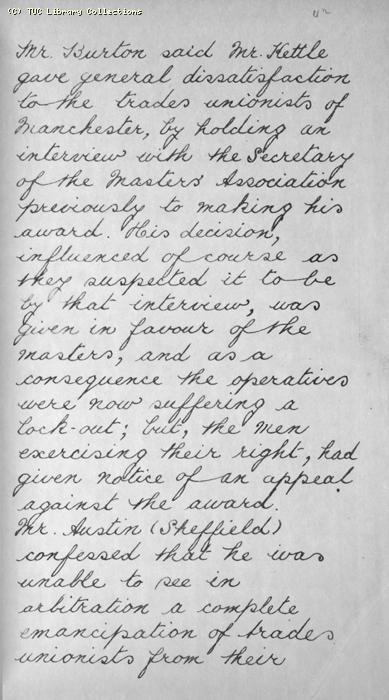 (C) TUC Library Collections
Mr. Burton said Mr. Kettle
gave general dissatisfaction
to the trades unionists of
Manchester, by holding an
interview with the Secretary
of the Masters' Association
previously to making his
award. His decision,
influenced of course as
they suspected it to be
by that interview, was
given in favour of the
masters, and as a
consequence the operatives
were now suffering a
lock-out; but, the men
exercising their right, had
given notice of an appeal
against the award.
Mr. Austin (Sheffield)
confessed that he was
unable to see in
arbitration a complete
emancipation of trades
unionists from their